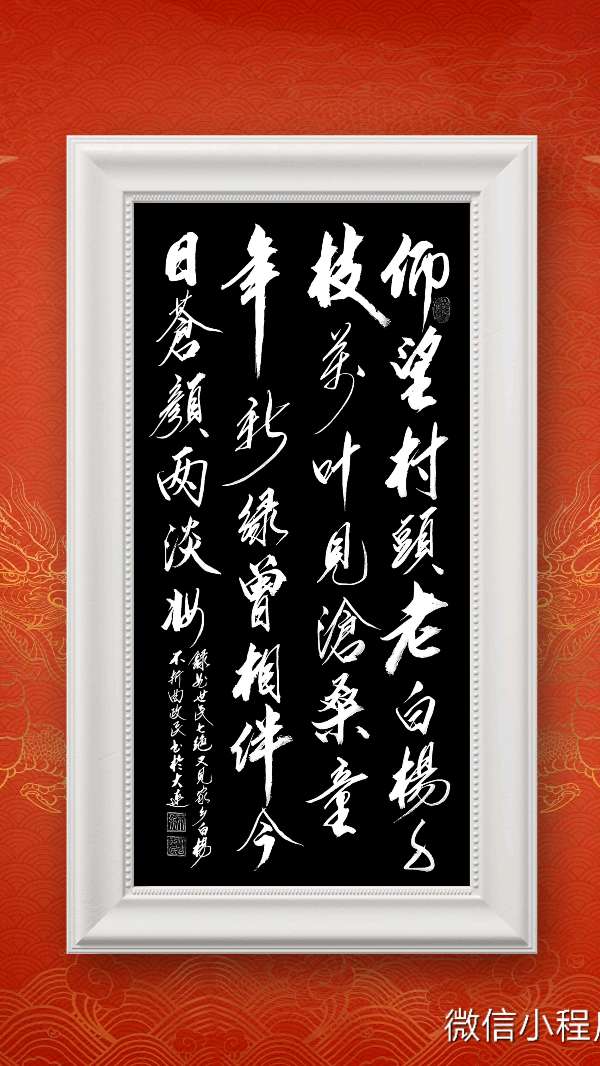 仰望村頭老白楊千
枝萬叶見滄桑童
年新綠曾相伴今
日蒼顏兩淡妝
世民七绝又見家乡白楊
曲政民书於大連
微信小程